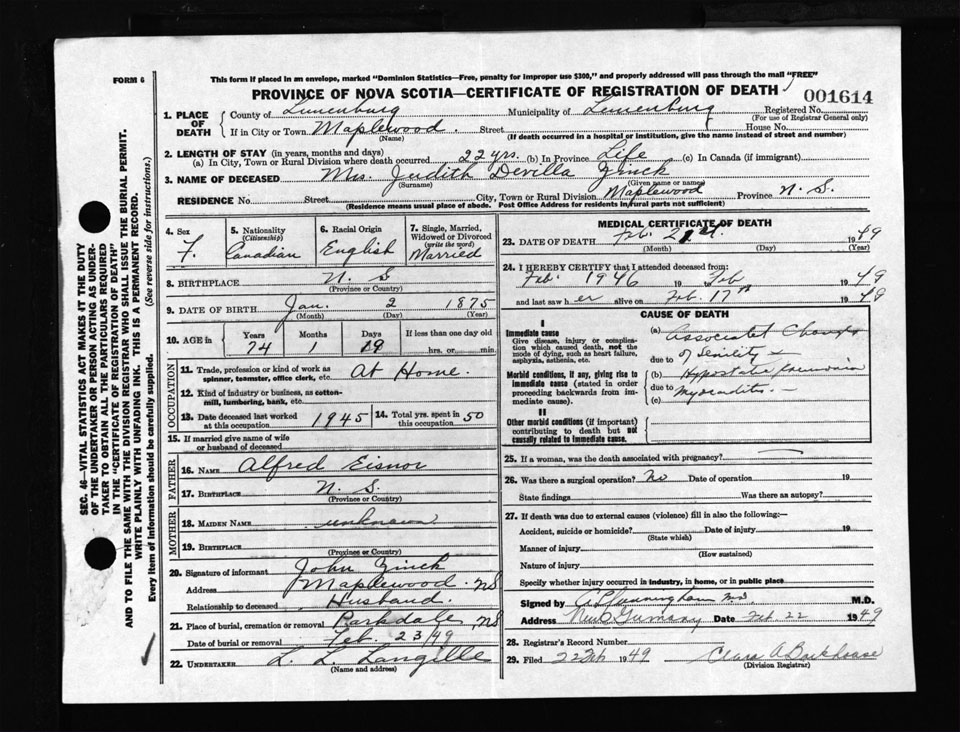 FORM 6
This form if placed in an envelope, marked "Dominion Statistics—Free, penalty for improper use $300," and properly addressed will pass through the mail "FREE"
PROVINCE OF NOVA SCOTIA—CERTIFICATE OF REGISTRATION OF DEATH
001614
1. PLACE OF DEATH
County of Lunenburg Municipality of Lunenburg Registered No.
(For use of Registrar General only)
If in City or Town Maplewood. Street House No.
(Name) (If death occurred in a hospital or institution, give the name instead of street and number)
2. LENGTH OF STAY (in years, months and days)
(a) In City, Town or Rural Division where death occurred 22 yrs. (b) In Province Life (c) In Canada (if immigrant)
3. NAME OF DECEASED Mrs. Judith Devilla Zinck
(Surname) (Given name or names)
RESIDENCE No. Street City, Town or Rural Division Maplewood Province N. S.
(Residence means usual place of abode. Post Office Address for residents in rural parts not sufficient)
4. Sex F.
5. Nationality (Citizenship) Canadian
6. Racial Origin English
7. Single, Married, Widowed or Divorced (write the word) Married
8. BIRTHPLACE N. S
(Province or Country)
9. DATE OF BIRTH Jan. 2 1875
(Month) (Day) (Year)
10. AGE in Years Months Days If less than one day old
74 1 19 hrs. or min.
OCCUPATION
11. Trade, profession or kind of work as spinner, teamster, office clerk, etc. At Home.
12. Kind of industry or business, as cotton-mill, lumbering, bank, etc.
13. Date deceased last worked at this occupation 1945
14. Total yrs. spent in this occupation 50
15. If married give name of wife or husband of deceased
FATHER
16. NAME Alfred Eisnor
17. BIRTHPLACE N. S.
(Province or Country)
MOTHER
18. MAIDEN NAME unknown
19. BIRTHPLACE
(Province or Country)
20. Signature of informant John Zinck
Address Maplewood. NS
Relationship to deceased Husband.
21. Place of burial, cremation or removal Parkdale, NS
Date of burial or removal Feb. 23/49
22. UNDERTAKER L. L. Langille
(Name and address)
MEDICAL CERTIFICATE OF DEATH
23. DATE OF DEATH Feb. 21 1949
(Month) (Day) (Year)
24. I HEREBY CERTIFY that I attended deceased from:
Feb. 1946 19 to Feb 1949
and last saw her alive on Feb. 17th 1949
CAUSE OF DEATH
I
Immediate cause
Give disease, injury or complication which caused death, not the mode of dying, such as heart failure, asphyxia, asthenia, etc.
Morbid conditions, if any, giving rise to immediate cause (stated in order proceeding backwards from immediate cause).
II
Other morbid conditions (if important) contributing to death but not causally related to immediate cause.
(a) Associated Changes
due to of Senility
(b) Hypostatic Pneumonia
due to Myocarditis
(c)
25. If a woman, was the death associated with pregnancy?
26. Was there a surgical operation? No Date of operation 19
State findings Was there an autopsy?
27. If death was due to external causes (violence) fill in also the following:—
Accident, suicide or homicide? Date of injury 19
(State which)
Manner of injury
(How sustained)
Nature of injury
Specify whether injury occurred in industry, in home, or in public place
Signed by Cunningham MD M.D.
Address New Germany Date Feb. 22 1949
28. Registrar's Record Number
29. Filed 22 Feb 1949 Clara A Barkhouse
(Division Registrar)
SEC. 46—VITAL STATISTICS ACT MAKES IT THE DUTY
OF THE UNDERTAKER OR PERSON ACTING AS UNDER-
TAKER TO OBTAIN ALL THE PARTICULARS REQUIRED
IN THE "CERTIFICATE OF REGISTRATION OF DEATH"
AND TO FILE THE SAME WITH THE DIVISION REGISTRAR WHO SHALL ISSUE THE BURIAL PERMIT.
WRITE PLAINLY WITH UNFADING INK. THIS IS A PERMANENT RECORD.
Every item of information should be carefully supplied. (See reverse side for instructions.)